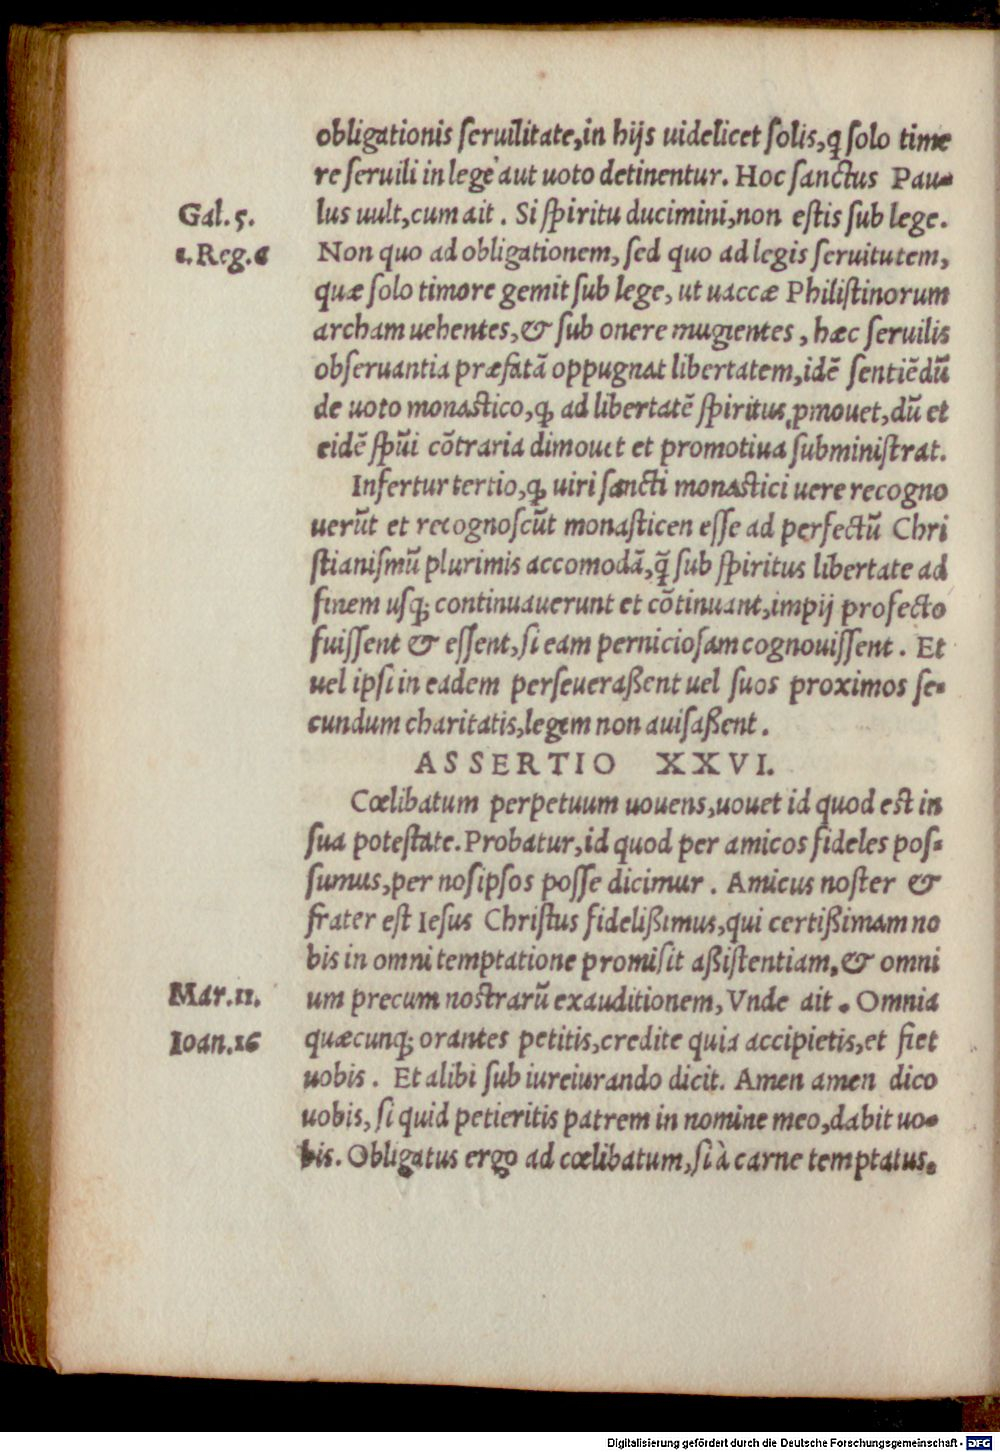 obligationis ſeruilitate,in hijs uidelicet ſolis,ꝗ ſolo time
re ſeruili in lege aut uoto detinentur. Hoc ſanctus Pau-
Gal. 5.
lus uult,cum ait. Si ſpiritu ducimini,non eſtis ſub lege.
1.Reg.6
Non quo ad obligationem, ſed quo ad legis ſeruitutem,
quæ ſolo timore gemit ſub lege, ut uaccæ Philiſtinorum
archam uehentes,& ſub onere mugientes, hæc ſeruilis
obſeruantia præfatā oppugnat libertatem,idē ſentiēdū
de uoto monaſtico,ꝙ ad libertatē ſpiritus ꝓmouet,dū et
eidē ſpūi cōtraria dimouet et promotiua ſubminiſtrat.
Infertur tertio,ꝙ uiri ſancti monaſtici uere recogno
uerūt et recognoſcūt monaſticen eſſe ad perfectū Chri
ſtianiſmū plurimis accomodā,ꝗ̄ ſub ſpiritus libertate ad
finem uſꝗ; continuauerunt et cōtinuant,impij profecto
fuiſſent & eſſent,ſi eam pernicioſam cognouiſſent. Et
uel ipſi in eadem perſeueraßent uel ſuos proximos ſe-
cundum charitatis,legem non auiſaßent.
ASSERTIO XXVI.
Cœlibatum perpetuum uouens,uouet id quod eſt in
ſua poteſtate. Probatur,id quod per amicos fideles poſ-
ſumus,per noſipſos poſſe dicimur. Amicus noſter &
frater eſt Ieſus Chriſtus fidelißimus,qui certißimam no
bis in omni temptatione promiſit aßiſtentiam,& omni
Mar.11.
um precum noſtrarū exauditionem, Vnde ait. Omnia
Ioan.16
quæcunꝗ; orantes petitis,credite quia accipietis,et fiet
uobis. Et alibi ſub iureiurando dicit. Amen amen dico
uobis, ſi quid petieritis patrem in nomine meo,dabit uo-
bis. Obligatus ergo ad cœlibatum,ſi à carne temptatus.
Digitalisierung gefördert durch die Deutsche Forschungsgemeinschaft - DFG